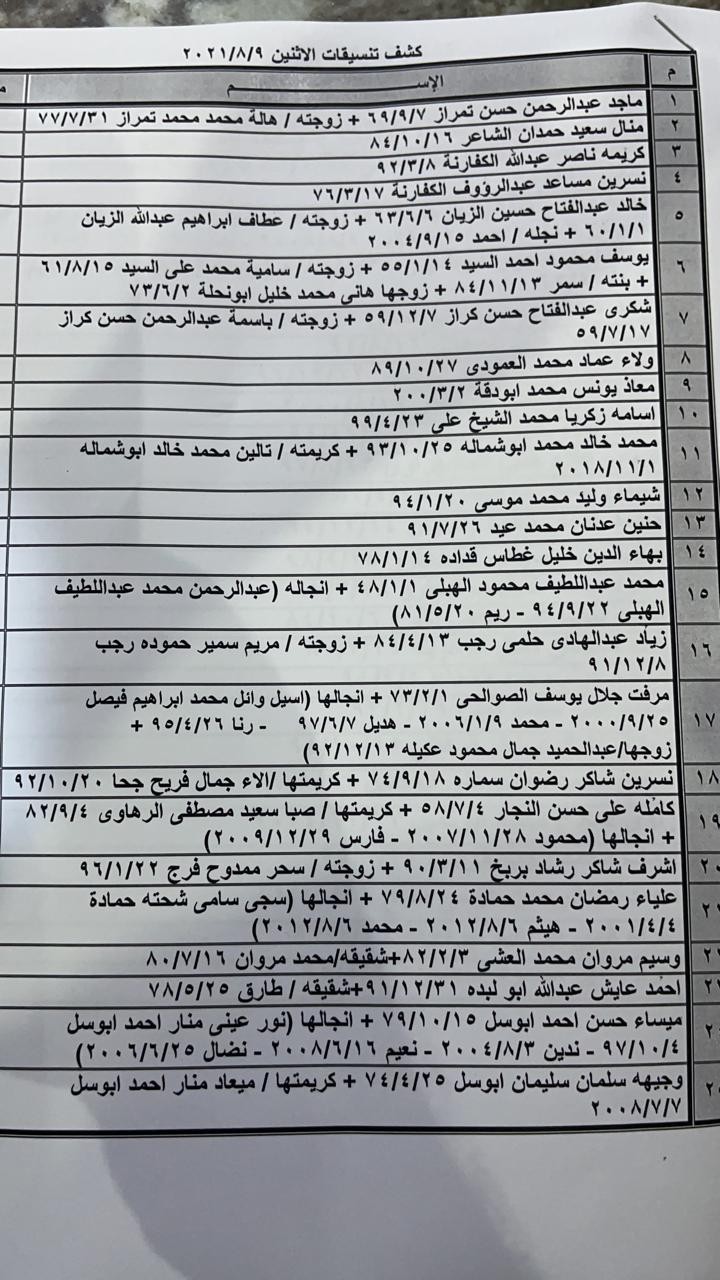 كشف تنسيقات الاثنين ٢٠٢١/٨/٩
م الإســــــــم
١ ماجد عبدالرحمن حسن تمراز ٦٩/٩/٧ + زوجته / هالة محمد محمد تمراز ٧٧/٧/٣١
٢ منال سعيد حمدان الشاعر ٨٤/١٠/١٦
٣ كريمه ناصر عبدالله الكفارنة ٩٢/٣/٨
٤ نسرين مساعد عبدالرؤوف الكفارنة ٧٦/٣/١٧
٥ خالد عبدالفتاح حسين الزيان ٦٣/٦/٦ + زوجته / عطاف ابراهيم عبدالله الزيان
٦٠/١/١ + نجله / احمد ٢٠٠٤/٩/١٥
٦ يوسف محمود احمد السيد ٥٥/١/١٤ + زوجته / سامية محمد على السيد ٦١/٨/١٥
+ بنته / سمر ٨٤/١١/١٣ + زوجها هانى محمد خليل ابونحلة ٧٣/٦/٢
٧ شكرى عبدالفتاح حسن كراز ٥٩/١٢/٧ + زوجته / باسمة عبدالرحمن حسن كراز
٥٩/٧/١٧
٨ ولاء عماد محمد العمودى ٨٩/١٠/٢٧
٩ معاذ يونس محمد ابودقة ٢٠٠٠/٣/٢
١٠ اسامه زكريا محمد الشيخ على ٩٩/٤/٢٣
١١ محمد خالد محمد ابوشماله ٩٣/١٠/٢٥ + كريمته / تالين محمد خالد ابوشماله
٢٠١٨/١١/١
١٢ شيماء وليد محمد موسى ٩٤/١/٢٠
١٣ حنين عدنان محمد عيد ٩١/٧/٢٦
١٤ بهاء الدين خليل غطاس قداده ٧٨/١/١٤
١٥ محمد عبداللطيف محمود الهبلى ٤٨/١/١ + انجاله (عبدالرحمن محمد عبداللطيف
الهبلى ٩٤/٩/٢٢ - ريم ٨١/٥/٢٠)
١٦ زياد عبدالهادى حلمى رجب ٨٤/٤/١٣ + زوجته / مريم سمير حموده رجب
٩١/١٢/٨
١٧ مرفت جلال يوسف الصوالحى ٧٣/٢/١ + انجالها (اسيل وائل محمد ابراهيم فيصل
٢٠٠٠/٩/٢٥ - محمد ٢٠٠٦/١/٩ - هديل ٩٧/٦/٧ - رنا ٩٥/٤/٢٦ +
زوجها/عبدالحميد جمال محمود عكيله ٩٢/١٢/١٣)
١٨ نسرين شاكر رضوان سماره ٧٤/٩/١٨ + كريمتها /الاء جمال فريح جحا ٩٢/١٠/٢٠
١٩ كامله على حسن النجار ٥٨/٧/٤ + كريمتها / صبا سعيد مصطفى الرهاوى ٨٢/٩/٤
+ انجالها (محمود ٢٠٠٧/١١/٢٨ - فارس ٢٠٠٩/١٢/٢٩)
اشرف شاكر رشاد بربخ ٩٠/٣/١١ + زوجته / سحر ممدوح فرج ٩٦/١/٢٢
علياء رمضان محمد حمادة ٧٩/٨/٢٤ + انجالها (سجى سامى شحته حمادة
٢٠٠١/٤/٤ - هيثم ٢٠١٢/٨/٦ - محمد ٢٠١٢/٨/٦)
وسيم مروان محمد العشى ٨٢/٢/٣+شقيقه/محمد مروان ٨٠/٧/١٦
احمد عايش عبدالله ابو لبده ٩١/١٢/٣١+شقيقه / طارق ٧٨/٥/٢٥
ميساء حسن احمد ابوسل ٧٩/١٠/١٥ + انجالها (نور عينى منار احمد ابوسل
٩٧/١٠/٤ - ندين ٢٠٠٤/٨/٣ - نعيم ٢٠٠٨/٦/١٦ - نضال ٢٠٠٦/٦/٢٥)
وجيهه سلمان سليمان ابوسل ٧٤/٤/٢٥ + كريمتها / ميعاد منار احمد ابوسل
٢٠٠٨/٧/٧